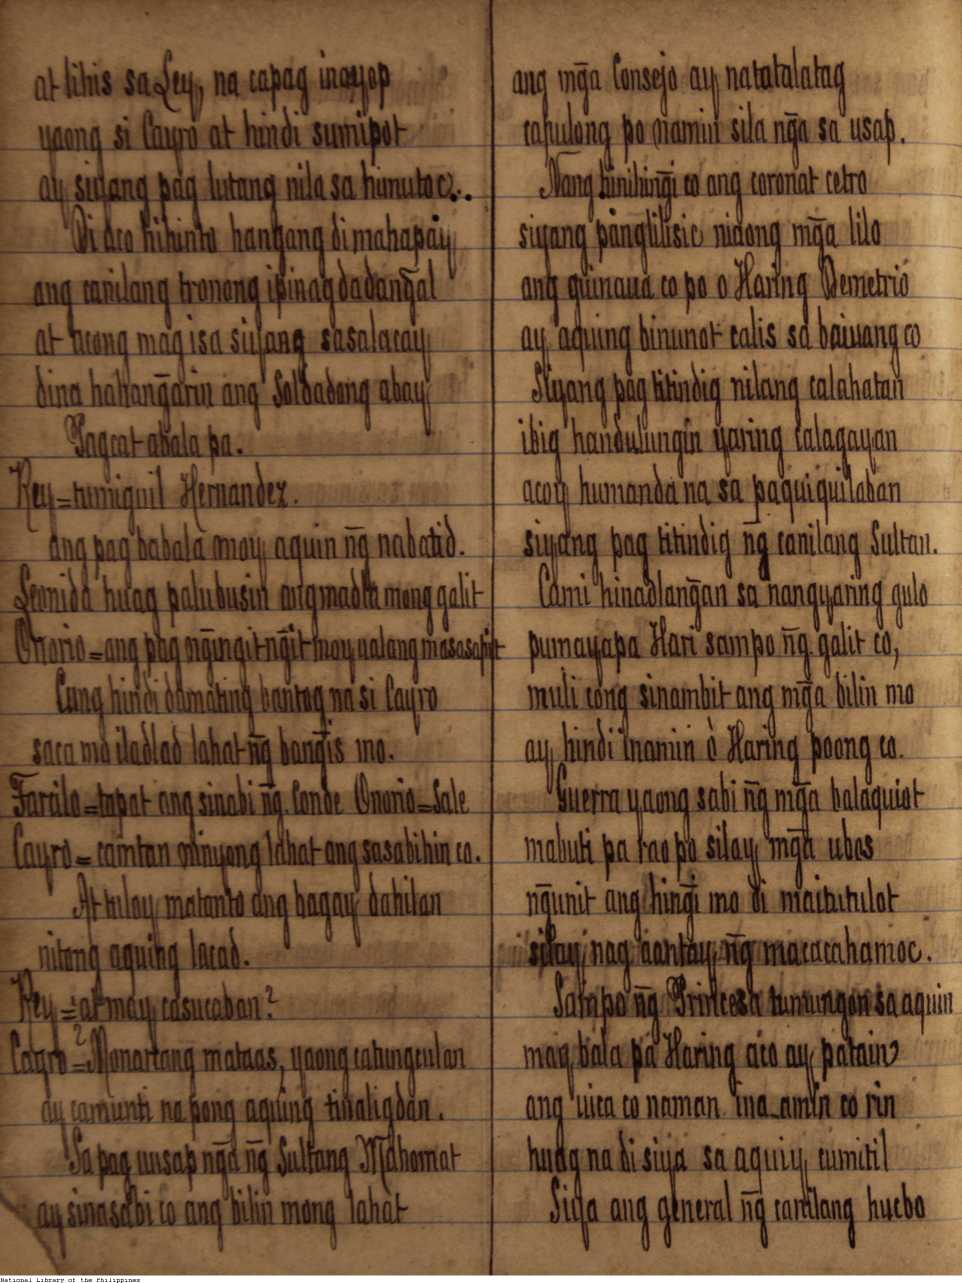 at lihis sa Ley, na capag inayop
yaong si Cayro at hindi sumipot
ay siyang pag lutang nila sa himutoc..
Di aco hihinto hangang di mahapay
ang canilang tronong ipinagdadangal
at acong mag isa siyang sasalacay
dina hahangarin ang Soldadong abay
Pagcat abala pa.
Rey = tumiguil Hernandez.
ang pag babala moy aquin ng̃ nabatid.
Leonida huag palubusin ang mong galit
Onorio = ang pag ng̃ing̃itng̃it moy ualang masasapit
Cung hindi dumating bantog na si Cayro
saca mo iladlad lahat ng̃ bang̃is mo.
Farilo = tapat ang sinabi ng̃ Conde Onorio = Sale
Cayro = camtan ninyong lahat ang sasabihin co.
At tuloy matanto ang bagay dahilan
nitong aquing lacad.
Rey = at may casucaban?
Cayro = Monarcang mataas, yaong catungculan
ay camunti na pong aquing tinaligdan.
Sa pag uusap ng̃a ng̃ Sultang Mahomat
ay sinasabi co ang bilin mong lahat
ang mg̃a Consejo ay natatalatag
capulong po namin sila ng̃a sa usap.
Nang hinihing̃i co ang coronat cetro
siyang pang̃lilisic nidong mg̃a lilo
ang guinaua co po o Haring Demetrio
ay aquing binunot calis sa baiuang co
Siyang pag titindig nilang calahatan
ibig handulungin yaring calagayan
acoy humanda na sa paquiquilaban
siyang pag titindig ng̃ canilang Sultan.
Cami hinadlang̃an sa nangyaring gulo
pumayapa Hari sampo ng̃ galit co,
muli cong sinambit ang mg̃a bilin mo
ay hindi inamin ò Haring poong co.
Guerra yaong sabi ng̃ mg̃a balaquiot
mabuti pa rao po silay mg̃a ubos
ng̃unit ang hing̃i mo di maitutulot
silay nag aantay ng̃ macacahamoc.
Sampo ng̃ Princesa tumungon sa aquin
mag bala pa Haring aco ay patain
ang uica co naman ina-amin co rin
huag na di siya sa aquiy cumitil
Siya ang general ng̃ canilang hucbo
National Library of the Philippines